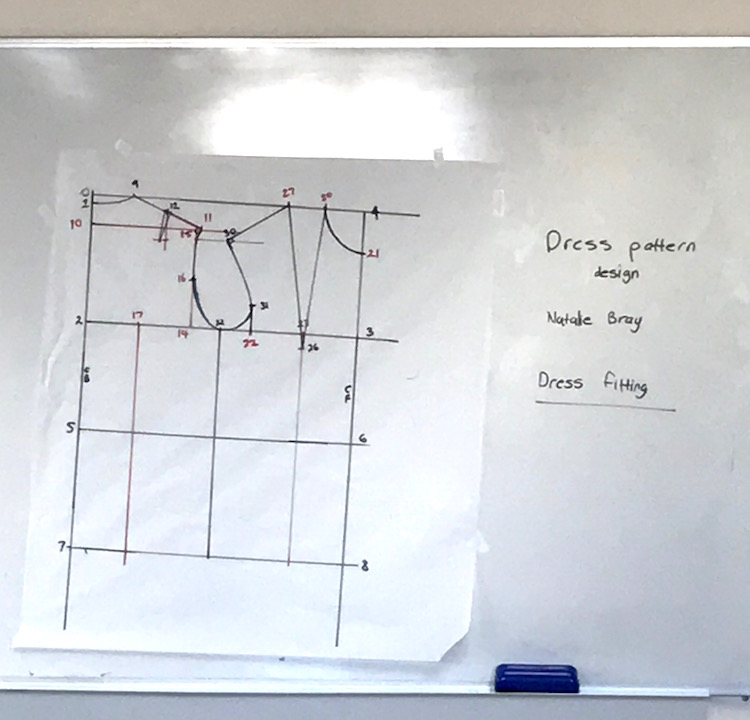 0
9
27
30
4
1
12
10
15
11
30
21
16
31
2
17
14
12
22
3
26
CB
CF
5
6
7
8
Dress pattern
design
Natalie Bray
Dress fitting